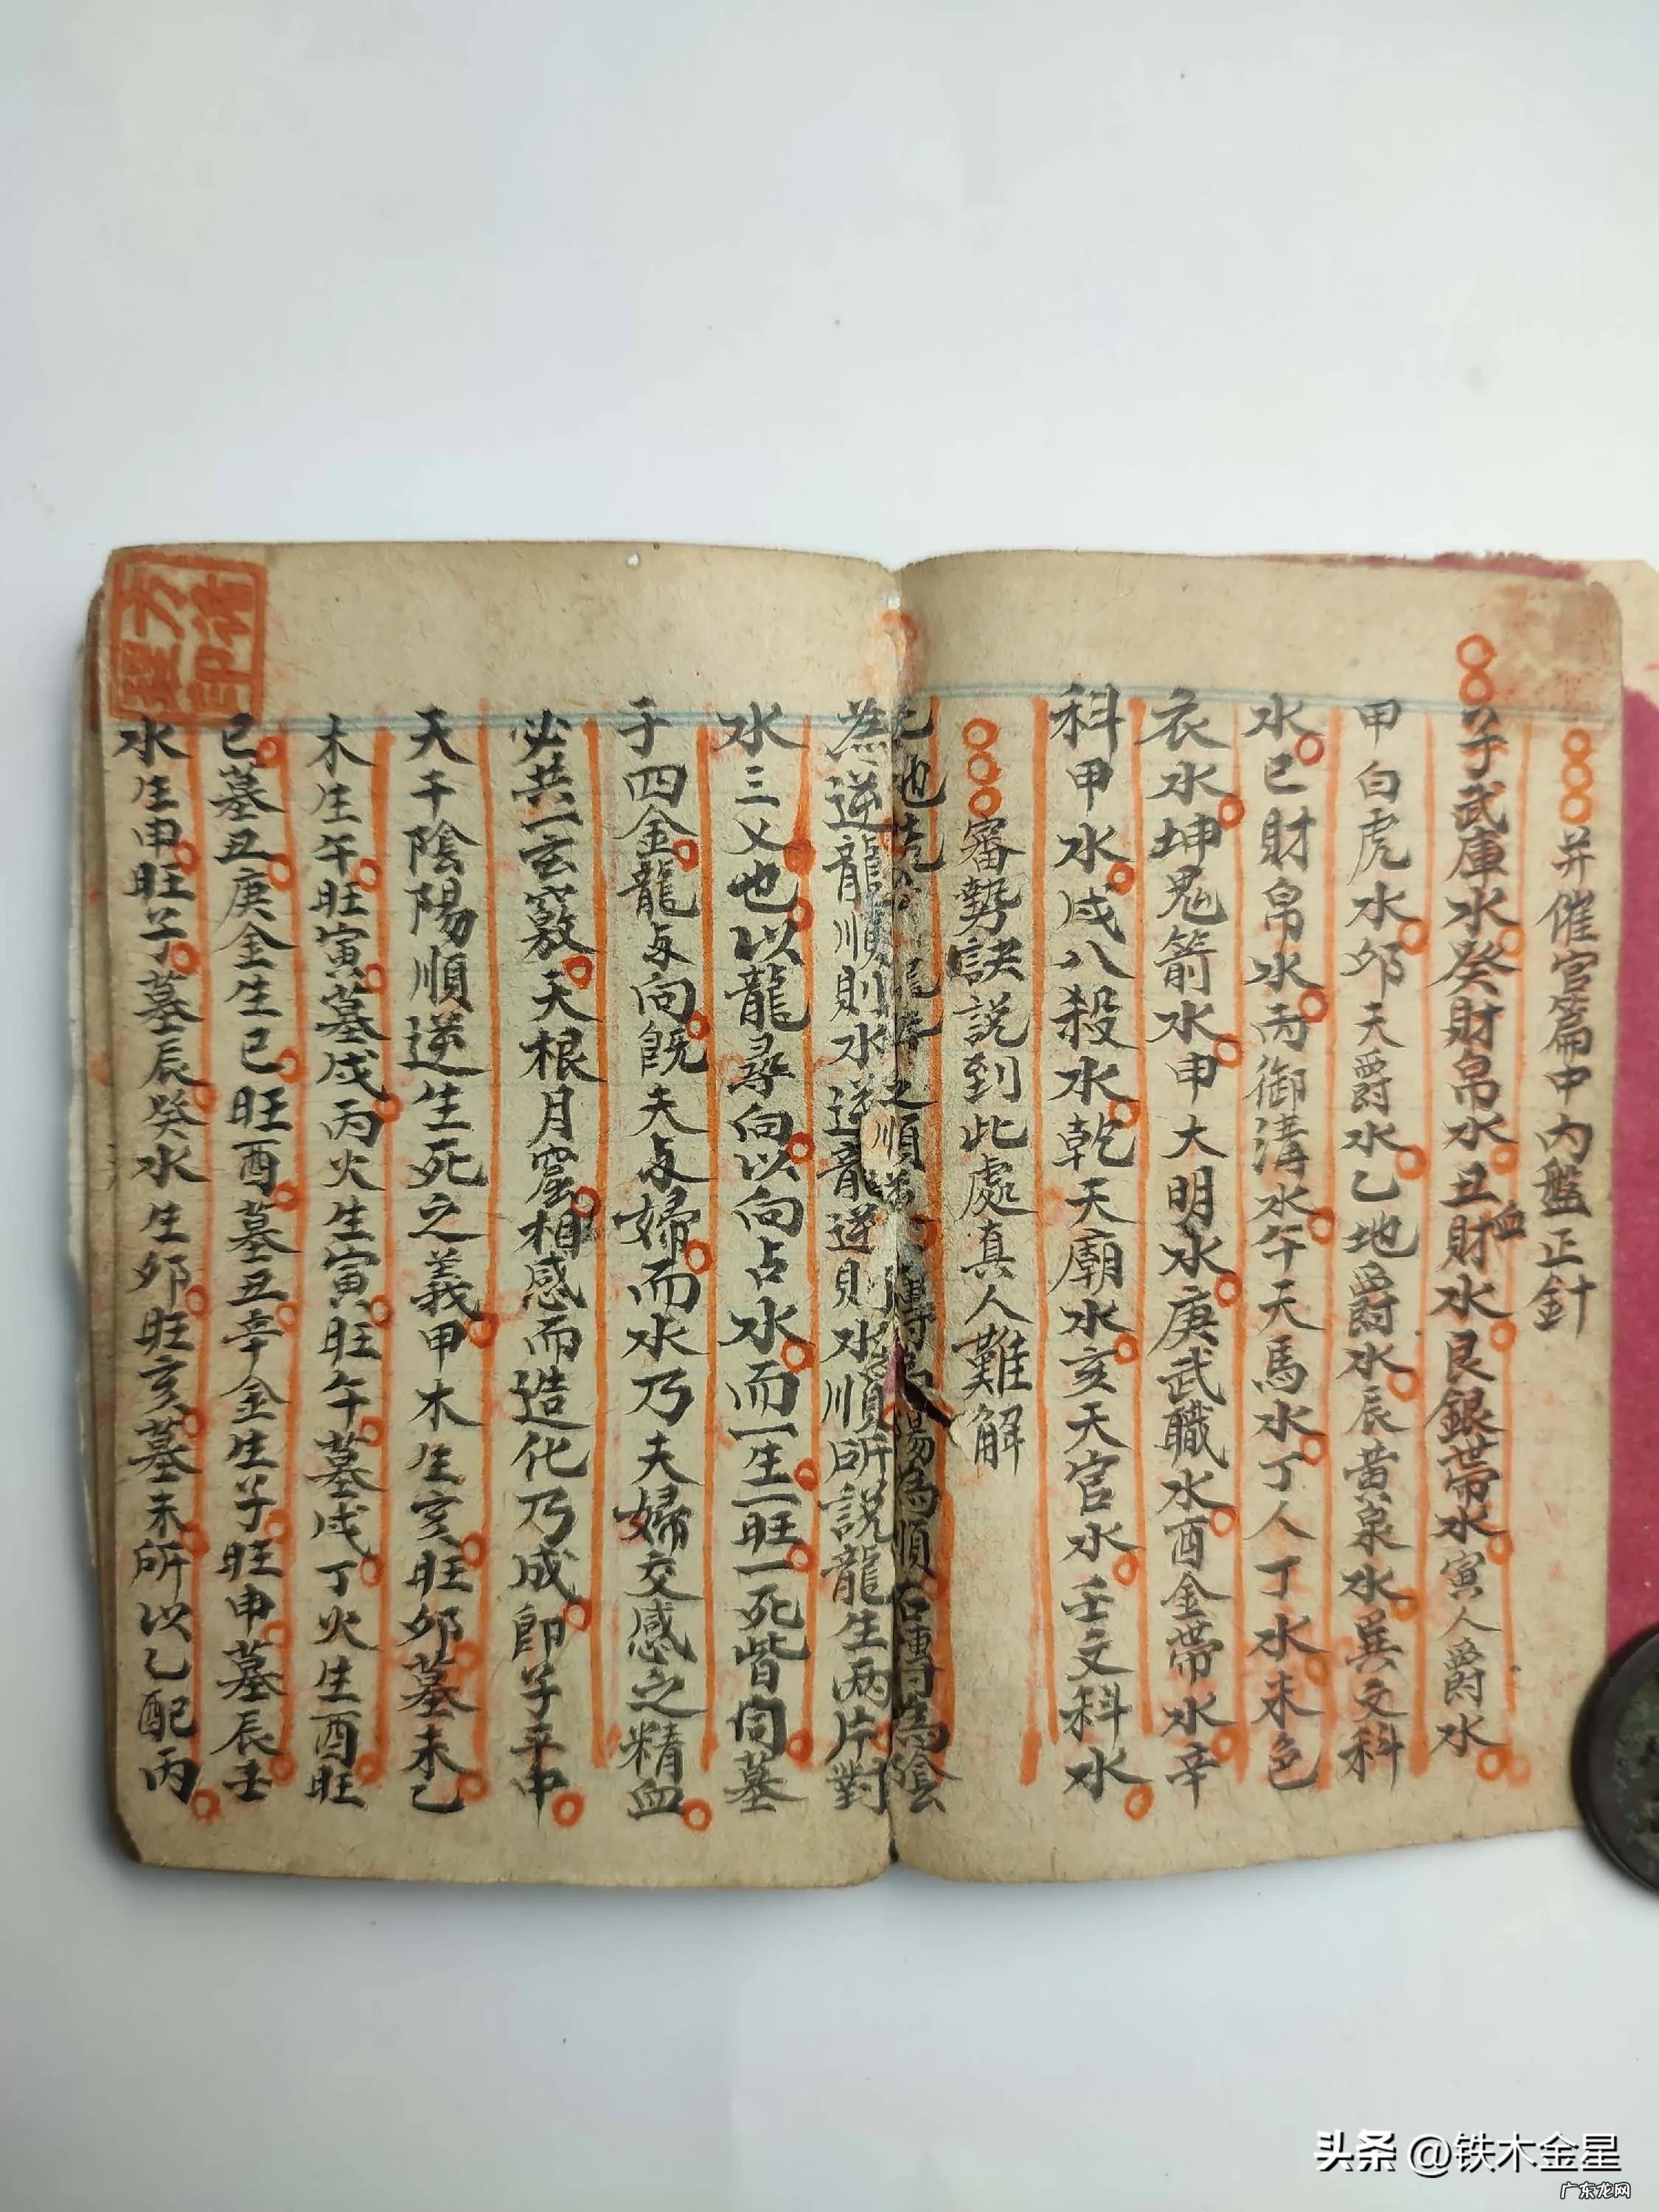 并催官篇中內盤正針
子武庫水癸財帛水丑財血水艮銀帶水寅人爵水
甲白虎水卯天爵水乙地爵水辰黃泉水巽文科
水巳財帛水丙御溝水午天馬水丁人丁水未色
衣水坤鬼箭水申大明水庚武職水酉金帶水辛
科甲水戌八殺水乾天廟水亥天官水壬文科水
審勢訣説到此處真人難解
之順
陽為順右轉為陰
為逆龍順則水逆龍逆則水順所説龍生兩片對
水三叉也以龍尋向以向占水而一生一旺一死皆同墓
于四金龍与向既夫与婦而水乃夫婦交感之精血
必共一玄竅天根月窟相感而造化乃成即子平中
天干陰陽順逆生死之義甲木生亥旺卯墓未乙
木生午旺寅墓戌丙火生寅旺午墓戌丁火生酉旺
巳墓丑庚金生巳旺酉墓丑辛金生子旺申墓辰壬
水生申旺子墓辰癸水生卯旺亥墓未所以乙配丙
头条 @铁木金星
广东龙网